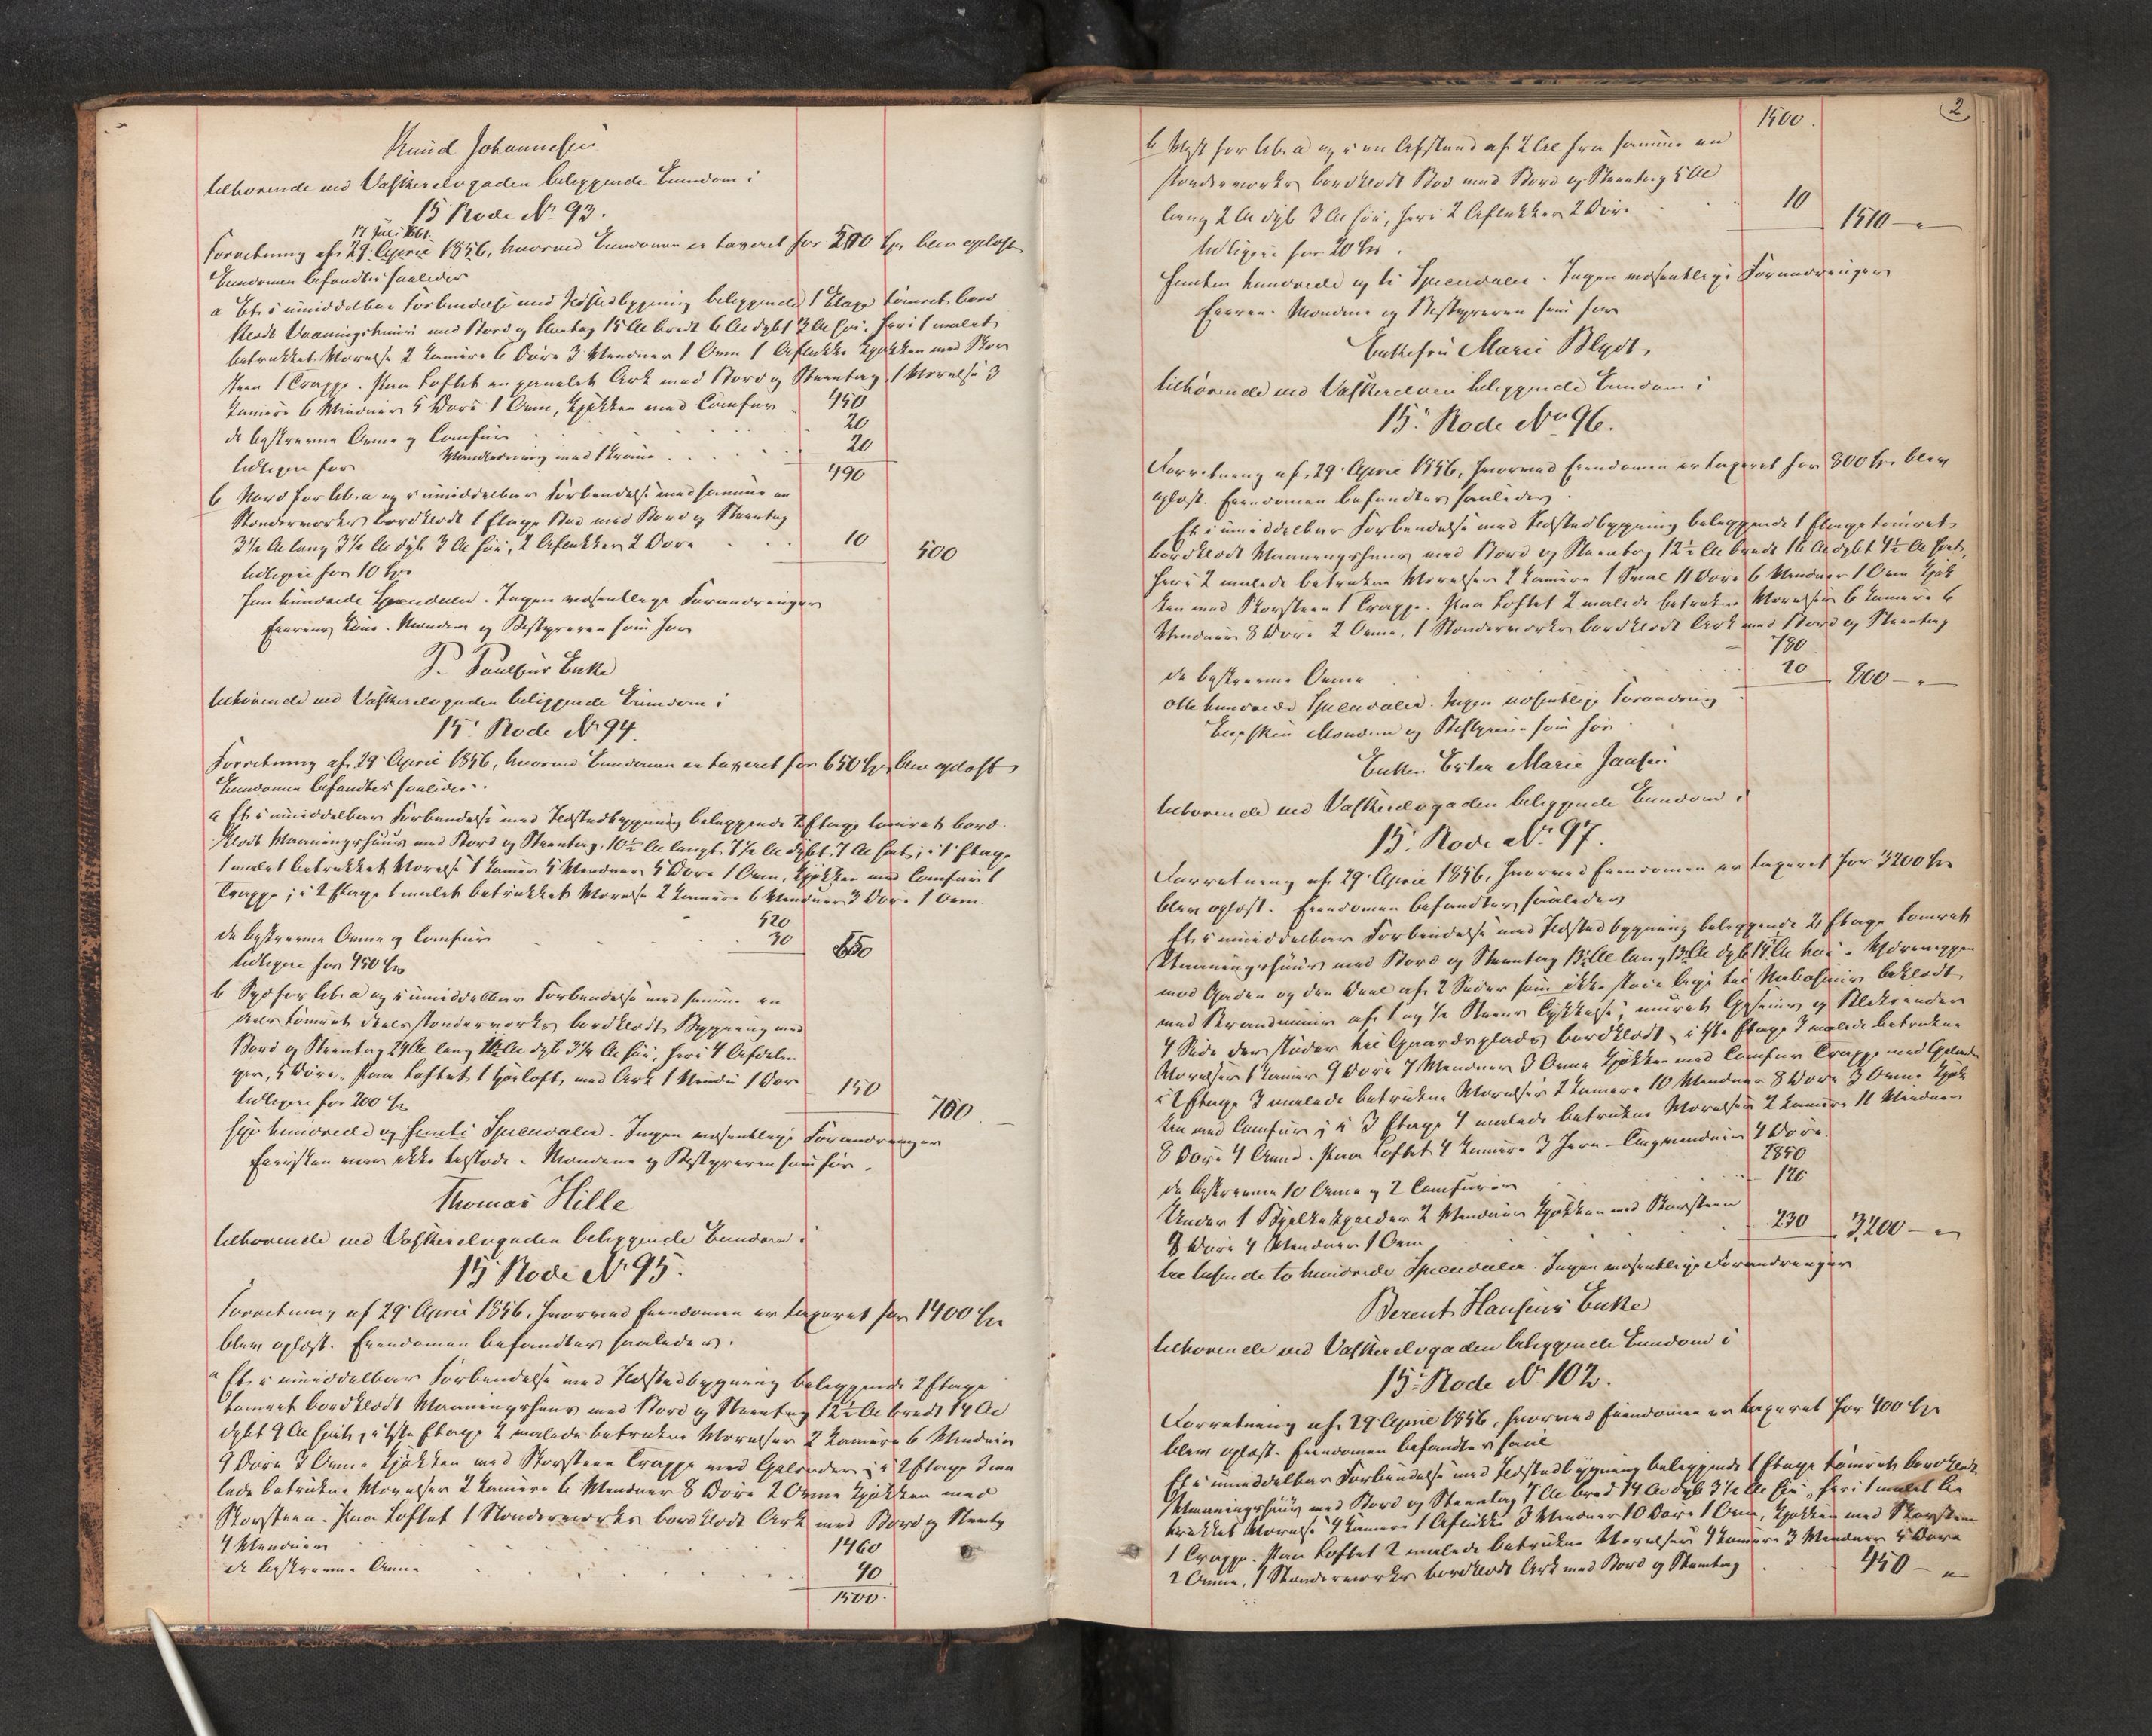 Knud Johannesen
tilhørende ved Vaskerelvgaden beliggende Eiendom i
15 Rode No 93.
17 Juli 1861.
Forretning af 29 April 1856, hvorved Eiendommen er taxeret for 500 Spd blev oplæst
Eiendommen befandtes saaledes
a Et i umiddelbar Forbindelse med Ildstedbygning beliggende 1 Etage tømret bord
klædt Vaaningshuus med Bord og Steentag 15 Al bredt 6 Al dybt 3 Al høi. heri 1 malet
betrukket Værelse 2 Kamere 6 Døre 3 Vinduer 1 Ovn 1 Aflukke Kjøkken med Skor
steen 1 Trappe. Paa Loftet en panelet Ark med Bord og Steentag, 1 Værelse 3
Kamere 6 Vinduer 5 Døre 1 Ovn, Kjøkken med Comfur 450
de beskrevne Ovne og Comfur 20
tidligere for Vandledning med 1 Krane 20
490
b Nord for Litr. a og i umiddelbar Forbindelse med samme en
Stonderværks bordklædt 1 Etage Bod med Bord og Steentag
3½ Al lang 3½ Al dyb 3 Al høi, 2 Aflukker 2 Døre 10 500
tidligere for 10 Spd
Fem hundrede Speciedaler. Ingen væsentlige Forandringer
Eierens Kone. Mændene og Bestyreren som før
P. Poulsens Enke
tilhørende ved Vaskerelvgaden beliggende Eiendom i
15' Rode No 94.
Forretning af 29 April 1856, hvorved Eiendommen er taxeret for 650 Spd, blev oplæst
Eiendommen befandtes saaledes.
a Et i umiddelbar Forbindelse med Ildstedbygning beliggende 2 Etage tømret bord
klædt Vaaningshuus med Bord og Steentag, 10½ Al langt, 7½ Al dybt, 7 Al høit; i 1' Etage
1 malet betrukket Værelse 1 Kamer 5 Vinduer 5 Døre 1 Ovn, Kjøkken med Comfur 1
Trappe; i 2 Etage 1 malet betrukket Værelse 2 Kamere 6 Vinduer 3 Døre 1 Ovn
520
de beskrevne Ovne og Comfur 30 550
tidligere for 450 Spd
b Syd for Litr. a og i umiddelbar Forbindelse med samme en
deels tømret deels stonderværks bordklædt Bygning med
Bord og Steentag 24 Al lang Al dyb 3¼ Al høi, heri 4 Afdelin
ger, 5 Døre. Paa Loftet 1 Høeloft med Ark 1 Vindu 1 Dør 150
tidligere for 200 Spd 700.
syv hundrede Speciedaler. Ingen væsentlige Forandringer
Eiersken var ikke tilstede. Mændene og Bestyreren som før.
Thomas Hille
tilhørende ved Vaskerelvgaden beliggende Eiendom i
15 Rode No 95.
Forretning af 29' April 1856, hvorved Eiendommen er taxeret for 1400 Spd
blev oplæst. Eiendommen befandtes saaledes.
a Et i umiddelbar Forbindelse med Ildstedbygning beliggende 2 Etage
tømret bordklædt Vaaningshuus med Bord og Steentag 12½ Al bredt 14 Al
dybt 9 Al høit, i 1ste Etage 2 malede betrukne Værelser 2 Kamere 6 Vinduer
9 Døre 3 Ovne Kjøkken med Skorsteen Trappe med Gelænder; i 2 Etage 3 ma
lede betrukne Værelser 2 Kamere 6 Vinduer 8 Døre 2 Ovne Kjøkken med
Skorsteen. Paa Loftet 1 Stonderværks bordklædt Ark med Bord og Steentag
4 Vinduer 1460
de beskrevne Ovne 40
1500.
2
1500.
b Vest for Litr. a og i en Afstand af 2 Al fra samme en
stonderværks bordklædt Bod med Bord og Steentag 5 Al
lang 2 Al dyb 3 Al høi, heri 2 Aflukker 2 Døre 10 1510 - "
tidligere for 20 Spd.
Femten hundrede og ti Speciedaler. Ingen væsentlige Forandringer
Eieren. Mændene og Bestyreren som før
Enkefru Marie Blydt,
tilhørende ved Vaskerelven beliggende Eiendom i
15' Rode No 96.
Forretning af 29' April 1856, hvorved Eiendommen er taxeret for 800 Spd. blev
oplæst. Eiendommen befandtes saaledes.
Et i umiddelbar Forbindelse med Ildstedbygning beliggende 1 Etage tømret
bordklædt Vaaningshuus med Bord og Steentag 12½ Al bredt 16 Al dybt 4½ Al høit,
heri 2 malede betrukne Værelser 2 Kamere 1 Sval 11 Døre 6 Vinduer 1 Ovn Kjøk
ken med Skorsteen 1 Trappe. Paa Loftet 2 malede betrukne Værelser 6 Kamere 6
Vinduer 8 Døre 2 Ovne, 1 Stonderværks bordklædt Ark med Bord og Steentag
780
de beskrevne Ovne 20 800 - "
otte hundrede Speciedaler. Ingen væsentlige Forandring
Eiersken Mændene og Bestyreren som før.
Enken Ester Marie Jansen
tilhørende ved Vaskerelvgaden beliggende Eiendom i
15' Rode No 97.
Forretning af 29' April 1856, hvorved Eiendommen er taxeret for 3200 Spd
blev oplæst. Eiendommen befandtes saaledes
Et i umiddelbar Forbindelse med Ildstedbygning beliggende 2 Etage tømret
Vaaningshuus med Bord og Steentag Al lang Al dyb Al høi.
mod Gaden og den Deel af 2 Sider som ikke støde lige til Nabohuus beklædt
med Brandmuur af 1 og ½ Steens Tykkelse, muret Gesims og Blikrender
4 Side der støder til Gaardsplads bordklædt, i 1ste Etage 3 malede betrukne
Værelser 1 Kamer 9 Døre 7 Vinduer 3 Ovne Kjøkken med Comfur Trappe med Gelænder
i 2 Etage 3 malede betrukne Værelser 2 Kamere 10 Vinduer 8 Døre 3 Ovne Kjøk
ken med Comfur; i 3 Etage 4 malede betrukne Værelser 2 Kamere 11 Vinduer
8 Døre 4 Ovne. Paa Loftet 4 Kamere 3 Jern-Tagvinduer 4 Døre
2850
de beskrevne 10 Ovne og 2 Comfurer 120
Under 1 Bjelkekjelder 2 Kjøkken med Skorsteen
8 Døre 4 Vinduer 1 Ovn 230 3,200 - "
tre tusinde to hundrede Speciedaler. Ingen væsentlige Forandringer
Berent Hansens Enke
tilhørende ved Vaskerelvgaden beliggende Eiendom i
15' Rode No 102.
Forretning af 29 April 1856, hvorved Eiendommen er taxeret for 400 Spd
blev oplæst. Eiendommen befandtes saal
Et i umiddelbar Forbindelse med Ildstedbygning beliggende 1 Etage tømret bordklædt
Vaaningshuus med Bord og Steentag 7 Al bred 14 Al dyb 3½ Al høi, heri 1 malet be
trukket Værelse 4 Kamere 1 Aflukke 3 Vinduer 10 Døre 1 Ovn, Kjøkken med Skorsteen
1 Trappe. Paa Loftet 2 malede betrukne Værelser 4 Kamere 3 Vinduer 5 Døre
2 Ovne, 1 Stonderværks bordklædt Ark med Bord og Steentag 450 - "